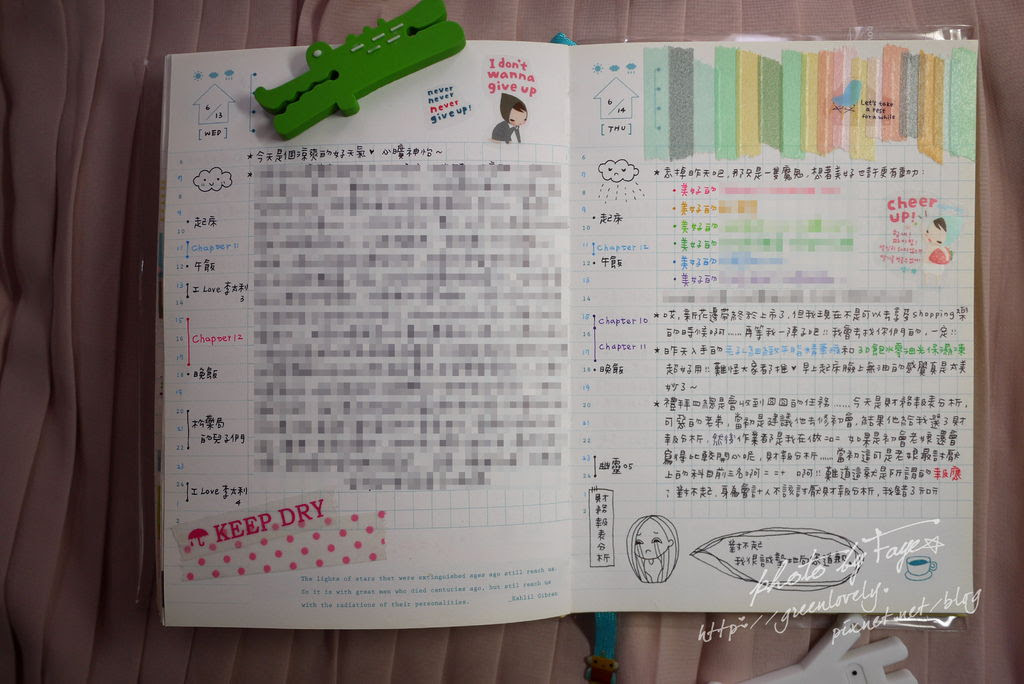 6/13
[WED]
never
never
never
give up!
I don't
wanna
give up
★今天是個涼爽的好天氣♥ 心曠神怡~
8
9
•起床
10
11
Chapter 11
12 •午飯
13
I Love 李太利
3
14
15
16
Chapter 12
17
18 •晚飯
19
20
21
的兒子們9
22
23
24 I Love 李太利
4
1
2
KEEP DRY
The lights of stars that were extinguished ages ago still reach us.
So it is with great men who died centuries ago, but still reach us
with the radiations of their personalities. _Kahlil Gibran
6/14
[THU]
Let's take
a rest
for a while
6
7
8
9 •起床
10
11 Chapter 12
12 •午飯
13
14
15 Chapter 10
16
17 Chapter 11
18 •晚飯
19
20
21
22
23
幽靈 05
24
1
2
★忘掉昨天吧,那只是一隻魔鬼,想著美好也許更有動力:
•美好的
•美好的
•美好的
•美好的
•美好的
•美好的
cheer
UP!
★哎,新花邊帶終於上市了,但我現在不是可以去享受shopping樂
的時候啊......再等我一陣子吧!!我會去找你們的,一定!!
超好用!!難怪大家都推♥早上起床臉上無油的感覺真是太美
妙了~
★禮拜四總是會收到 的任務......今天是財務報表分析,
可惡的老弟,當初是建議他去修初會,結果他給我選了財
報分析,然後作業都是我在做=.= 如果是初會老娘還會
寫得比較開心呢,財報分析......當初這可是老娘最討厭
上的科目前三名啊= =+ 啊!!難道這就是所謂的報應
?對不起,身為會計人不該討厭財報分析,我錯了
財務報表分析
對不起
我很誠摯地向你道歉
photo by Faye☆
http://greenlovely.
pixnet.net/blog